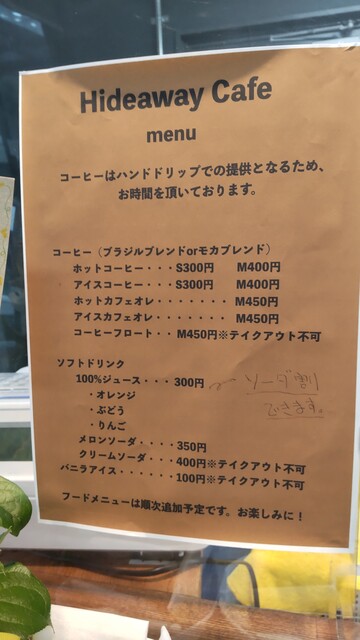 Hideaway Cafe
menu
コーヒーはハンドドリップでの提供となるため、
お時間を頂いております。
コーヒー（ブラジルブレンドorモカブレンド）
ホットコーヒー・・・S300円　M400円
アイスコーヒー・・・S300円　M400円
ホットカフェオレ・・・・・・・M450円
アイスカフェオレ・・・・・・・M450円
コーヒーフロート・・M450円※テイクアウト不可
ソフトドリンク
100%ジュース・・・300円 ソーダ割
・オレンジ できます。
・ぶどう
・りんご
メロンソーダ・・・・350円
クリームソーダ・・・400円※テイクアウト不可
バニラアイス・・・・・・100円※テイクアウト不可
フードメニューは順次追加予定です。お楽しみに！